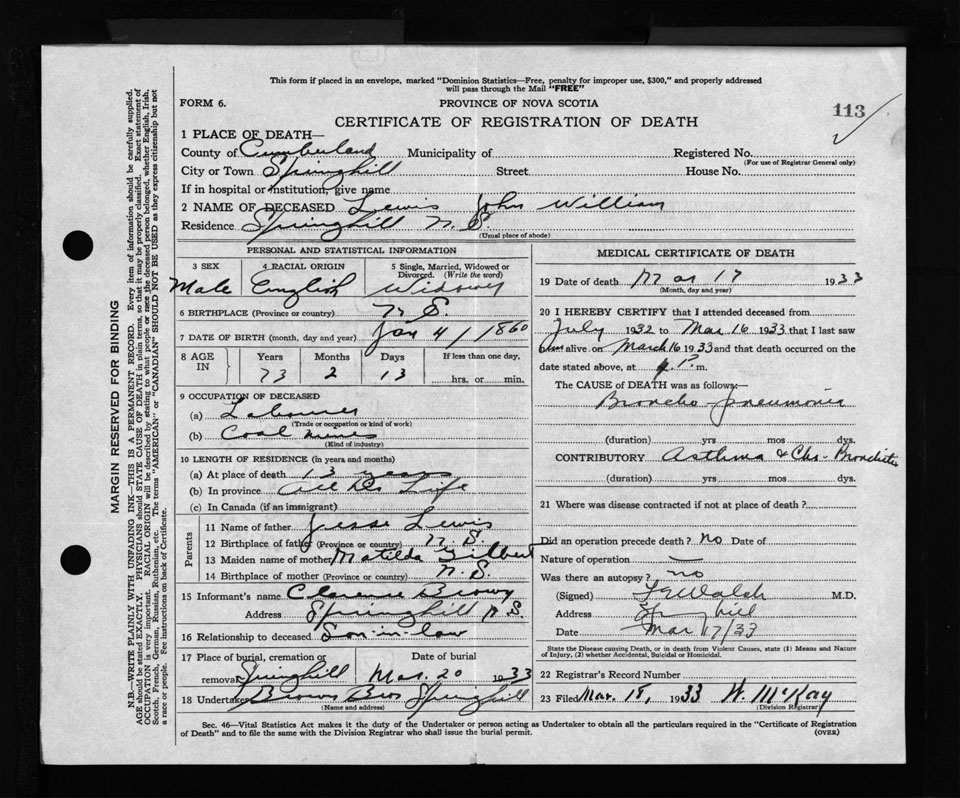 This form if placed in an envelope, marked "Dominion Statistics—Free, penalty for improper use, $300," and properly addressed
will pass through the Mail "FREE"
FORM 6.
PROVINCE OF NOVA SCOTIA
113
CERTIFICATE OF REGISTRATION OF DEATH
1 PLACE OF DEATH—
County of Cumberland Municipality of Registered No.
(For use of Registrar General only)
City or Town Springhill Street. House No.
If in hospital or institution, give name
2 NAME OF DECEASED Lewis John William
Residence Springhill N.S.
(Usual place of abode)
PERSONAL AND STATISTICAL INFORMATION
3 SEX 4 RACIAL ORIGIN 5 Single, Married, Widowed or
Divorced. (Write the word)
Male English Widower
6 BIRTHPLACE (Province or country) N.S.
7 DATE OF BIRTH (month, day and year) Jan 4/1860
8 AGE IN Years Months Days If less than one day,
73 2 13 hrs. or min.
9 OCCUPATION OF DECEASED
(a) Labourer
(Trade or occupation or kind of work)
(b) Coal mines
(Kind of industry)
10 LENGTH OF RESIDENCE (in years and months)
(a) At place of death 13 years
(b) In province All his Life
(c) In Canada (if an immigrant)
Parents
11 Name of father Jesse Lewis
12 Birthplace of father (Province or country) N.S.
13 Maiden name of mother Matilda Gilbert
14 Birthplace of mother (Province or country) N.S.
15 Informant's name Clarence Brown
Address Springhill N.S.
16 Relationship to deceased Son-in-law
17 Place of burial, cremation or Date of burial
removal Springhill Mar. 20 1933
18 Undertaker Brown Bros Springhill
(Name and address)
MEDICAL CERTIFICATE OF DEATH
19 Date of death Mar 17 1933
(Month, day and year)
20 I HEREBY CERTIFY that I attended deceased from
July 1932 to Mar 16 1933 that I last saw
him alive on March 16 1933 and that death occurred on
date stated above, at P. m.
The CAUSE of DEATH was as follows:—
Broncho-pneumonia
(duration) yrs mos dys.
CONTRIBUTORY Asthma & Chr. Bronchitis
(duration) yrs mos dys.
21 Where was disease contracted if not at place of death?
Did an operation precede death? no Date of
Nature of operation —
Was there an autopsy? no
(Signed) Walsh M.D.
Address Springhill
Date Mar 17/33
State the Disease causing Death, or in death from Violent Causes, state (1) Means and Nature
of Injury, (2) whether Accidental, Suicidal or Homicidal.
22 Registrar's Record Number
23 Filed Mar. 18, 1933 W. McKay
(Division Registrar)
Sec. 46—Vital Statistics Act makes it the duty of the Undertaker or person acting as Undertaker to obtain all the particulars required in the "Certificate of Registration
of Death" and to file the same with the Division Registrar who shall issue the burial permit.
(OVER)
MARGIN RESERVED FOR BINDING
N.B.—WRITE PLAINLY WITH UNFADING INK—THIS IS A PERMANENT RECORD. Every item of information should be carefully supplied.
AGE should be stated EXACTLY. PHYSICIANS should STATE CAUSE OF DEATH in plain terms, so that it may be properly classified. Exact statement of
OCCUPATION is very important. RACIAL ORIGIN will be described by stating to what people or race the deceased person belonged, whether English, Irish,
Scotch, French, German, Russian, Ruthenian, etc. The terms "AMERICAN" or "CANADIAN" SHOULD NOT BE USED as they express citizenship but not
a race or people. See instructions on back of Certificate.